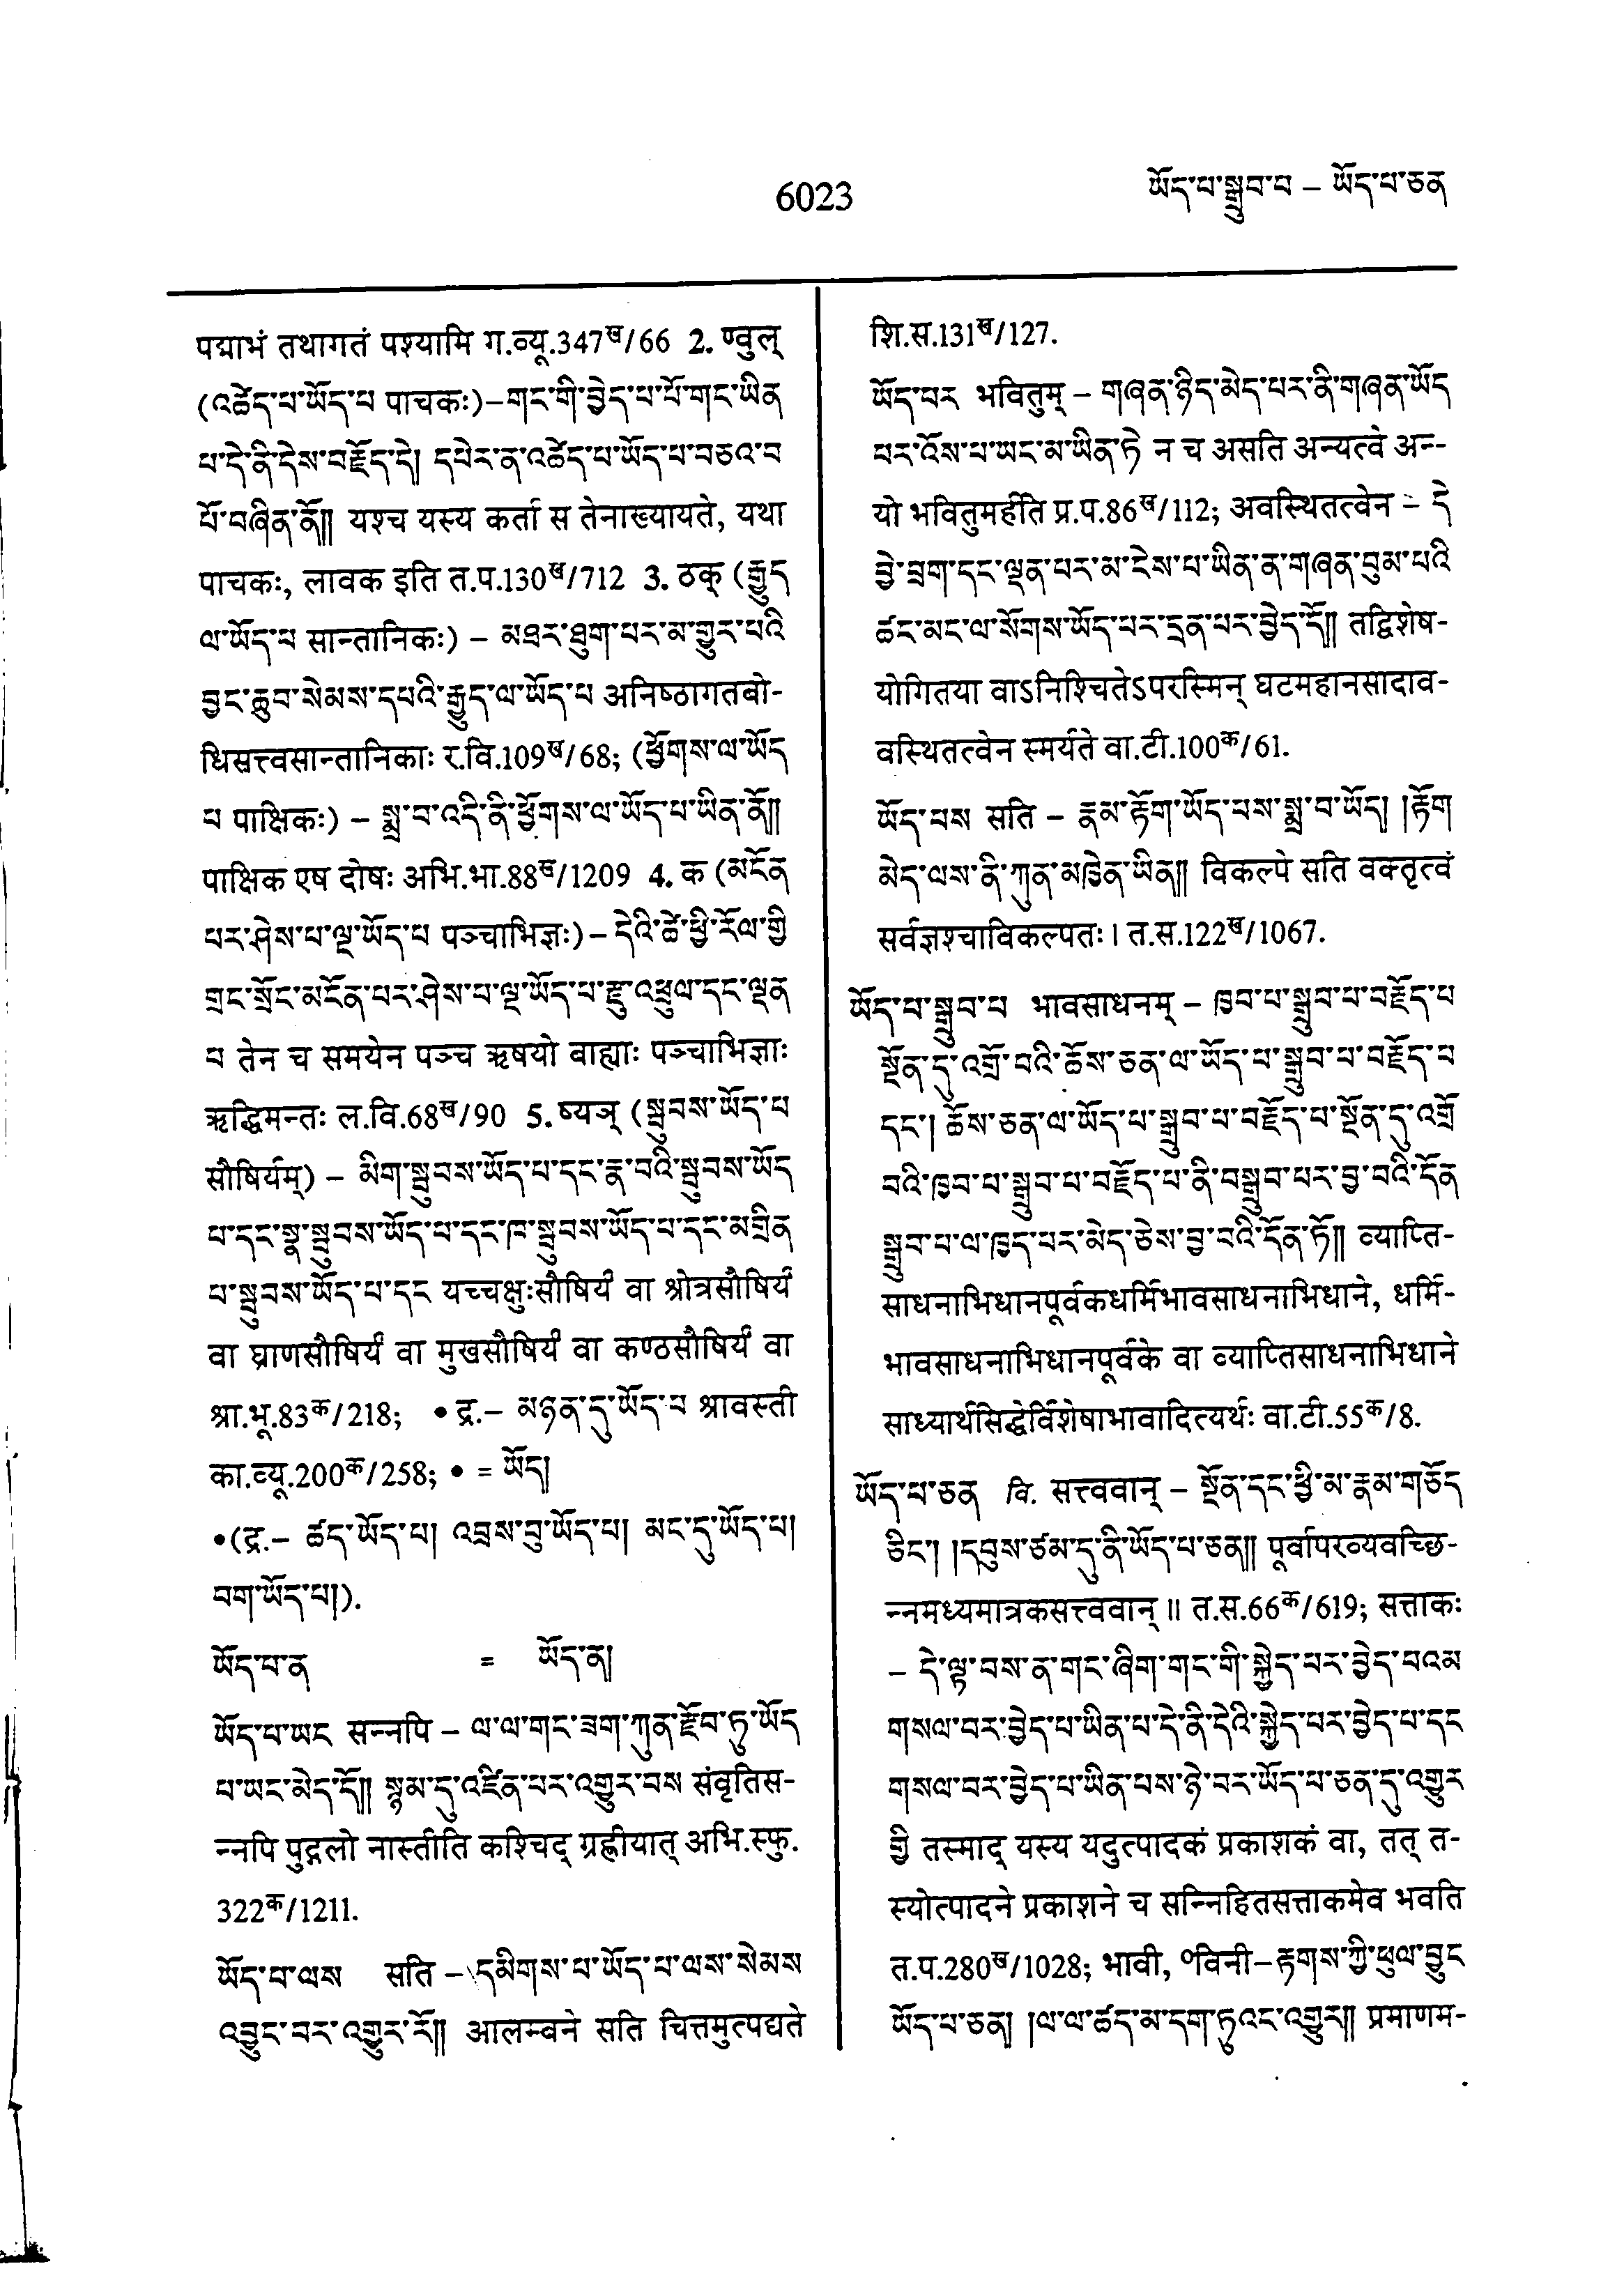 6023
ཡོད་པ་སྒྲུབ་པ – ཡོད་པ་ཅན
पद्माभं तथागतं पश्यामि ग.व्यू.347ख/66 2. ण्वुल्
(འཚེད་པ་ཡོད་པ पाचकः)–གང་གི་བྱེད་པ་པོ་གང་ཡིན
པ་དེ་ནི་དེས་བརྗོད་དེ། དཔེར་ན་འཚེད་པ་ཡོད་པ་བཅའ་བ
པོ་བཞིན་ནོ།། यश्च यस्य कर्ता स तेनाख्यायते, यथा
पाचकः, लावक इति त.प.130ख/712 3. ठक् (རྒྱུད
ལ་ཡོད་པ सान्तानिकः) – མཐར་ཐུག་པར་མ་གྱུར་པའི
བྱང་ཆུབ་སེམས་དཔའི་རྒྱུད་ལ་ཡོད་པ अनिष्ठागतबो-
धिसत्त्वसान्तानिकाः र.वि.109ख/68; (ཕྱོགས་ལ་ཡོད
པ पाक्षिकः) – སྨྲ་བ་འདི་ནི་ཕྱོགས་ལ་ཡོད་པ་ཡིན་ནོ།།
पाक्षिक एष दोषः अभि.भा.88ख/1209 4. क (མངོན
པར་ཤེས་པ་ལྔ་ཡོད་པ पञ्चाभिज्ञः)– དེའི་ཚེ་ཕྱི་རོལ་གྱི
དྲང་སྲོང་མངོན་པར་ཤེས་པ་ལྔ་ཡོད་པ་རྫུ་འཕྲུལ་དང་ལྡན
པ तेन च समयेन पञ्च ऋषयो बाह्याः पञ्चाभिज्ञाः
ऋद्धिमन्तः ल.वि.68ख/90 5. ष्यञ् (སྦུབས་ཡོད་པ
सौषिर्यम्) – མིག་སྦུབས་ཡོད་པ་དང་རྣ་བའི་སྦུབས་ཡོད
པ་དང་སྣ་སྦུབས་ཡོད་པ་དང་ཁ་སྦུབས་ཡོད་པ་དང་མགྲིན
པ་སྦུབས་ཡོད་པ་དང यच्चक्षुःसौषिर्यं वा श्रोत्रसौषिर्यं
वा घ्राणसौषिर्यं वा मुखसौषिर्यं वा कण्ठसौषिर्यं वा
श्रा.भू.83क/218; • द्र.– མཉན་དུ་ཡོད་པ श्रावस्ती
का.व्यू.200क/258; • = ཡོད།
•(द्र.– ཚད་ཡོད་པ། འབྲས་བུ་ཡོད་པ། མང་དུ་ཡོད་པ།
བག་ཡོད་པ།).
ཡོད་པ་ན = ཡོད་ན།
ཡོད་པ་ཡང सन्नपि – ལ་ལ་གང་ཟག་ཀུན་རྫོབ་ཏུ་ཡོད
པ་ཡང་མེད་དོ།། སྙམ་དུ་འཛིན་པར་འགྱུར་བས संवृतिस-
न्नपि पुद्गलो नास्तीति कश्चिद् ग्रह्णीयात् अभि.स्फु.
322क/1211.
ཡོད་པ་ལས सति – དམིགས་པ་ཡོད་པ་ལས་སེམས
འབྱུང་བར་འགྱུར་རོ།། आलम्बने सति चित्तमुत्पद्यते
शि.स.131ख/127.
ཡོད་པར भवितुम् – གཞན་ཉིད་མེད་པར་ནི་གཞན་ཡོད
པར་འོས་པ་ཡང་མ་ཡིན་ཏེ न च असति अन्यत्वे अन्-
यो भवितुमर्हति प्र.प.86ख/112; अवस्थितत्वेन – དེ
བྱེ་བྲག་དང་ལྡན་པར་མ་ངེས་པ་ཡིན་ན་གཞན་བུམ་པའི
ཚང་མང་ལ་སོགས་ཡོད་པར་དྲན་པར་བྱེད་དོ།། तद्विशेष-
योगितया वाऽनिश्चितेऽपरस्मिन् घटमहानसादाव-
वस्थितत्वेन स्मर्यते वा.टी.100क/61.
ཡོད་པས सति – རྣམ་རྟོག་ཡོད་པས་སྨྲ་བ་ཡོད། །རྟོག
མེད་ལས་ནི་ཀུན་མཁྱེན་ཡིན།། विकल्पे सति वक्तृत्वं
सर्वज्ञश्चाविकल्पतः। त.स.122ख/1067.
ཡོད་པ་སྒྲུབ་པ भावसाधनम् – ཁྱབ་པ་སྒྲུབ་པ་བརྗོད་པ
སྔོན་དུ་འགྲོ་བའི་ཆོས་ཅན་ལ་ཡོད་པ་སྒྲུབ་པ་བརྗོད་པ
དང་། ཆོས་ཅན་ལ་ཡོད་པ་སྒྲུབ་པ་བརྗོད་པ་སྔོན་དུ་འགྲོ
བའི་ཁྱབ་པ་སྒྲུབ་པ་བརྗོད་པ་ནི་བསྒྲུབ་པར་བྱ་བའི་དོན
སྒྲུབ་པ་ལ་ཁྱད་པར་མེད་ཅེས་བྱ་བའི་དོན་ཏོ།། व्याप्ति-
साधनाभिधानपूर्वकधर्मिभावसाधनाभिधाने, धर्मि-
भावसाधनाभिधानपूर्वके वा व्याप्तिसाधनाभिधाने
साध्यार्थसिद्धेर्विशेषाभावादित्यर्थः वा.टी.55क/8.
ཡོད་པ་ཅན वि. सत्त्ववान् – སྔོན་དང་ཕྱི་མ་རྣམ་གཅོད
ཅིང་། །དབུས་ཙམ་དུ་ནི་ཡོད་པ་ཅན།། पूर्वापरव्यवच्छि-
न्नमध्यमात्रकसत्त्ववान्॥ त.स.66क/619; सत्ताकः
– དེ་ལྟ་བས་ན་གང་ཞིག་གང་གི་སྐྱེད་པར་བྱེད་པའམ
གསལ་བར་བྱེད་པ་ཡིན་པ་དེ་ནི་དེའི་སྐྱེད་པར་བྱེད་པ་དང
གསལ་བར་བྱེད་པ་ཡིན་པས་ཉེ་བར་ཡོད་པ་ཅན་དུ་འགྱུར
གྱི तस्माद् यस्य यदुत्पादकं प्रकाशकं वा, तत् त-
स्योत्पादने प्रकाशने च सन्निहितसत्ताकमेव भवति
त.प.280ख/1028; भावी, ०विनी–རྟགས་ཀྱི་ཕུལ་བྱུང
ཡོད་པ་ཅན། །ལ་ལ་ཚད་མ་དག་ཏུའང་འགྱུར།། प्रमाणम-